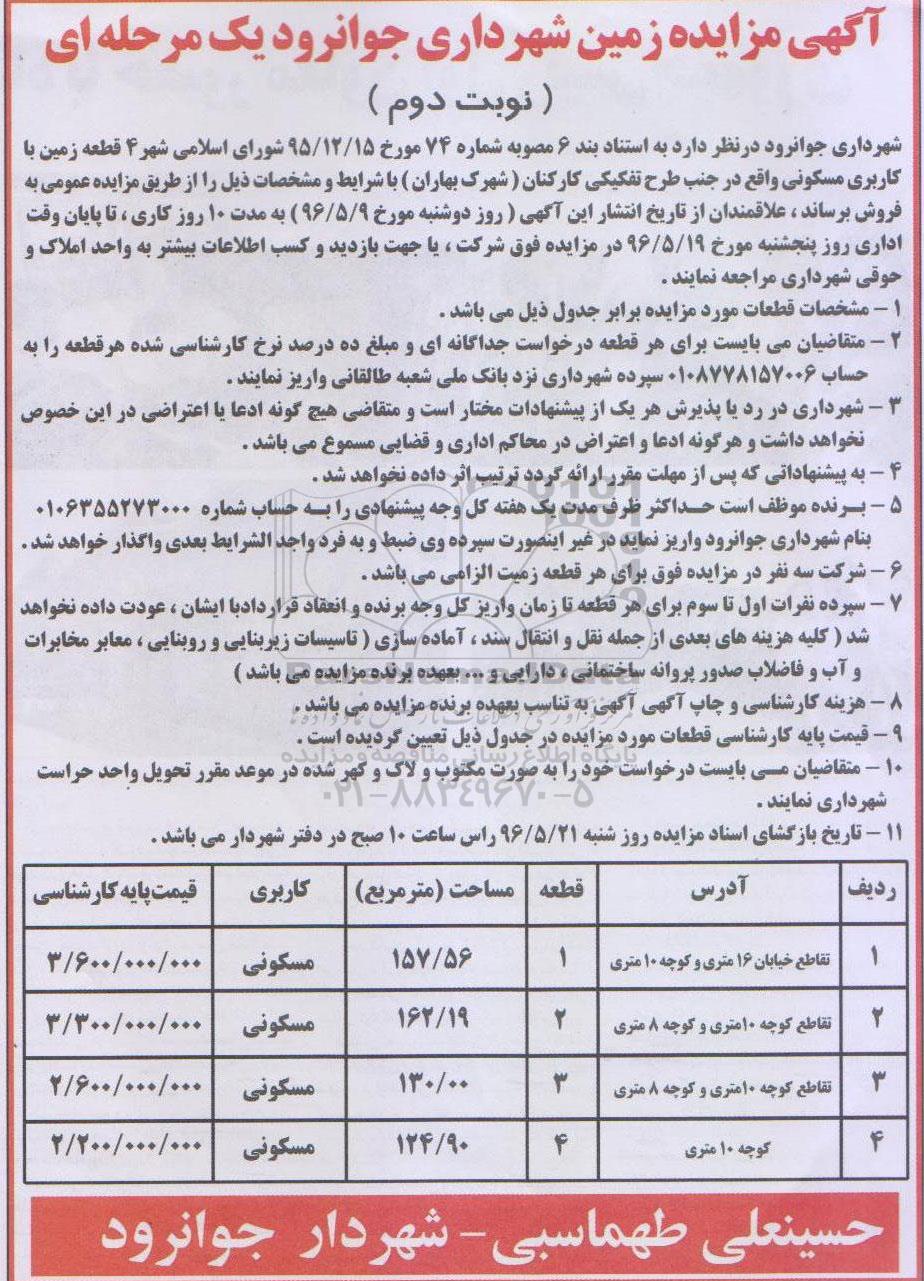 آگهی مزایده زمین شهرداری جوانرود یک مرحله ای
( نوبت دوم )
شهرداری جوانرود درنظر دارد به استناد بند ۶ مصوبه شماره ۷۴ مورخ ۹۵/۱۲/۱۵ شورای اسلامی شهر ۴ قطعه زمین با
کاربری مسکونی واقع در جنب طرح تفکیکی کارکنان ( شهرک بهاران ) با شرایط و مشخصات ذیل را از طریق مزایده عمومی به
فروش برساند ، علاقمندان از تاریخ انتشار این آگهی ( روز دوشنبه مورخ ۹۶/۵/۹ ) به مدت ۱۰ روز کاری ، تا پایان وقت
اداری روز پنجشنبه مورخ ۹۶/۵/۱۹ در مزایده فوق شرکت ، یا جهت بازدید و کسب اطلاعات بیشتر به واحد املاک و
حوقی شهرداری مراجعه نمایند .
۱ – مشخصات قطعات مورد مزایده برابر جدول ذیل می باشد .
۲ – متقاضیان می بایست برای هر قطعه درخواست جداگانه ای و مبلغ ده درصد نرخ کارشناسی شده هرقطعه را به
حساب ۰۱۰۸۷۷۸۱۵۷۰۰۶ سپرده شهرداری نزد بانک ملی شعبه طالقانی واریز نمایند .
۳ – شهرداری در رد یا پذیرش هر یک از پیشنهادات مختار است و متقاضی هیچ گونه ادعا یا اعتراضی در این خصوص
نخواهد داشت و هرگونه ادعا و اعتراض در محاکم اداری و قضایی مسموع می باشد .
۴ – به پیشنهاداتی که پس از مهلت مقرر ارائه گردد ترتیب اثر داده نخواهد شد .
۵ – برنده موظف است حداکثر ظرف مدت یک هفته کل وجه پیشنهادی را به حساب شماره ۰۱۰۶۳۵۵۲۷۳۰۰۰
بنام شهرداری جوانرود واریز نماید در غیر اینصورت سپرده وی ضبط و به فرد واجد الشرایط بعدی واگذار خواهد شد .
۶ – شرکت سه نفر در مزایده فوق برای هر قطعه زمیت الزامی می باشد .
۷ – سپرده نفرات اول تا سوم برای هر قطعه تا زمان واریز کل وجه برنده و انعقاد قراردادبا ایشان ، عودت داده نخواهد
شد ( کلیه هزینه های بعدی از جمله نقل و انتقال سند ، آماده سازی ( تاسیسات زیربنایی و روبنایی ، معابر مخابرات
و آب و فاضلاب صدور پروانه ساختمانی ، دارایی و ... بعهده برنده مزایده می باشد )
۸ – هزینه کارشناسی و چاپ آگهی آگهی به تناسب بعهده برنده مزایده می باشد .
۹ – قیمت پایه کارشناسی قطعات مورد مزایده در جدول ذیل تعیین گردیده است .
۱۰ – متقاضیان می بایست درخواست خود را به صورت مکتوب و لاک و مهر شده در موعد مقرر تحویل واحد حراست
شهرداری نمایند .
۱۱ – تاریخ بازگشای اسناد مزایده روز شنبه ۹۶/۵/۲۱ راس ساعت ۱۰ صبح در دفتر شهردار می باشد .
ParsNamadData
مرکز فرآوری اطلاعات پارس نماد داده ها
پایگاه اطلاع رسانی مناقصه و مزایده
۰۲۱-۸۸۳۴۹۶۷۰-۵
ردیف آدرس قطعه مساحت (مترمربع) کاربری قیمت پایه کارشناسی
۱ تقاطع خیابان ۱۶ متری و کوچه ۱۰ متری ۱ ۱۵۷/۵۶ مسکونی ۳/۶۰۰/۰۰۰/۰۰۰
۲ تقاطع کوچه ۱۰متری و کوچه ۸ متری ۲ ۱۶۲/۱۹ مسکونی ۳/۳۰۰/۰۰۰/۰۰۰
۳ تقاطع کوچه ۱۰متری و کوچه ۸ متری ۳ ۱۳۰/۰۰ مسکونی ۲/۶۰۰/۰۰۰/۰۰۰
۴ کوچه ۱۰ متری ۴ ۱۲۴/۹۰ مسکونی ۲/۲۰۰/۰۰۰/۰۰۰
حسینعلی طهماسبی – شهردار جوانرود